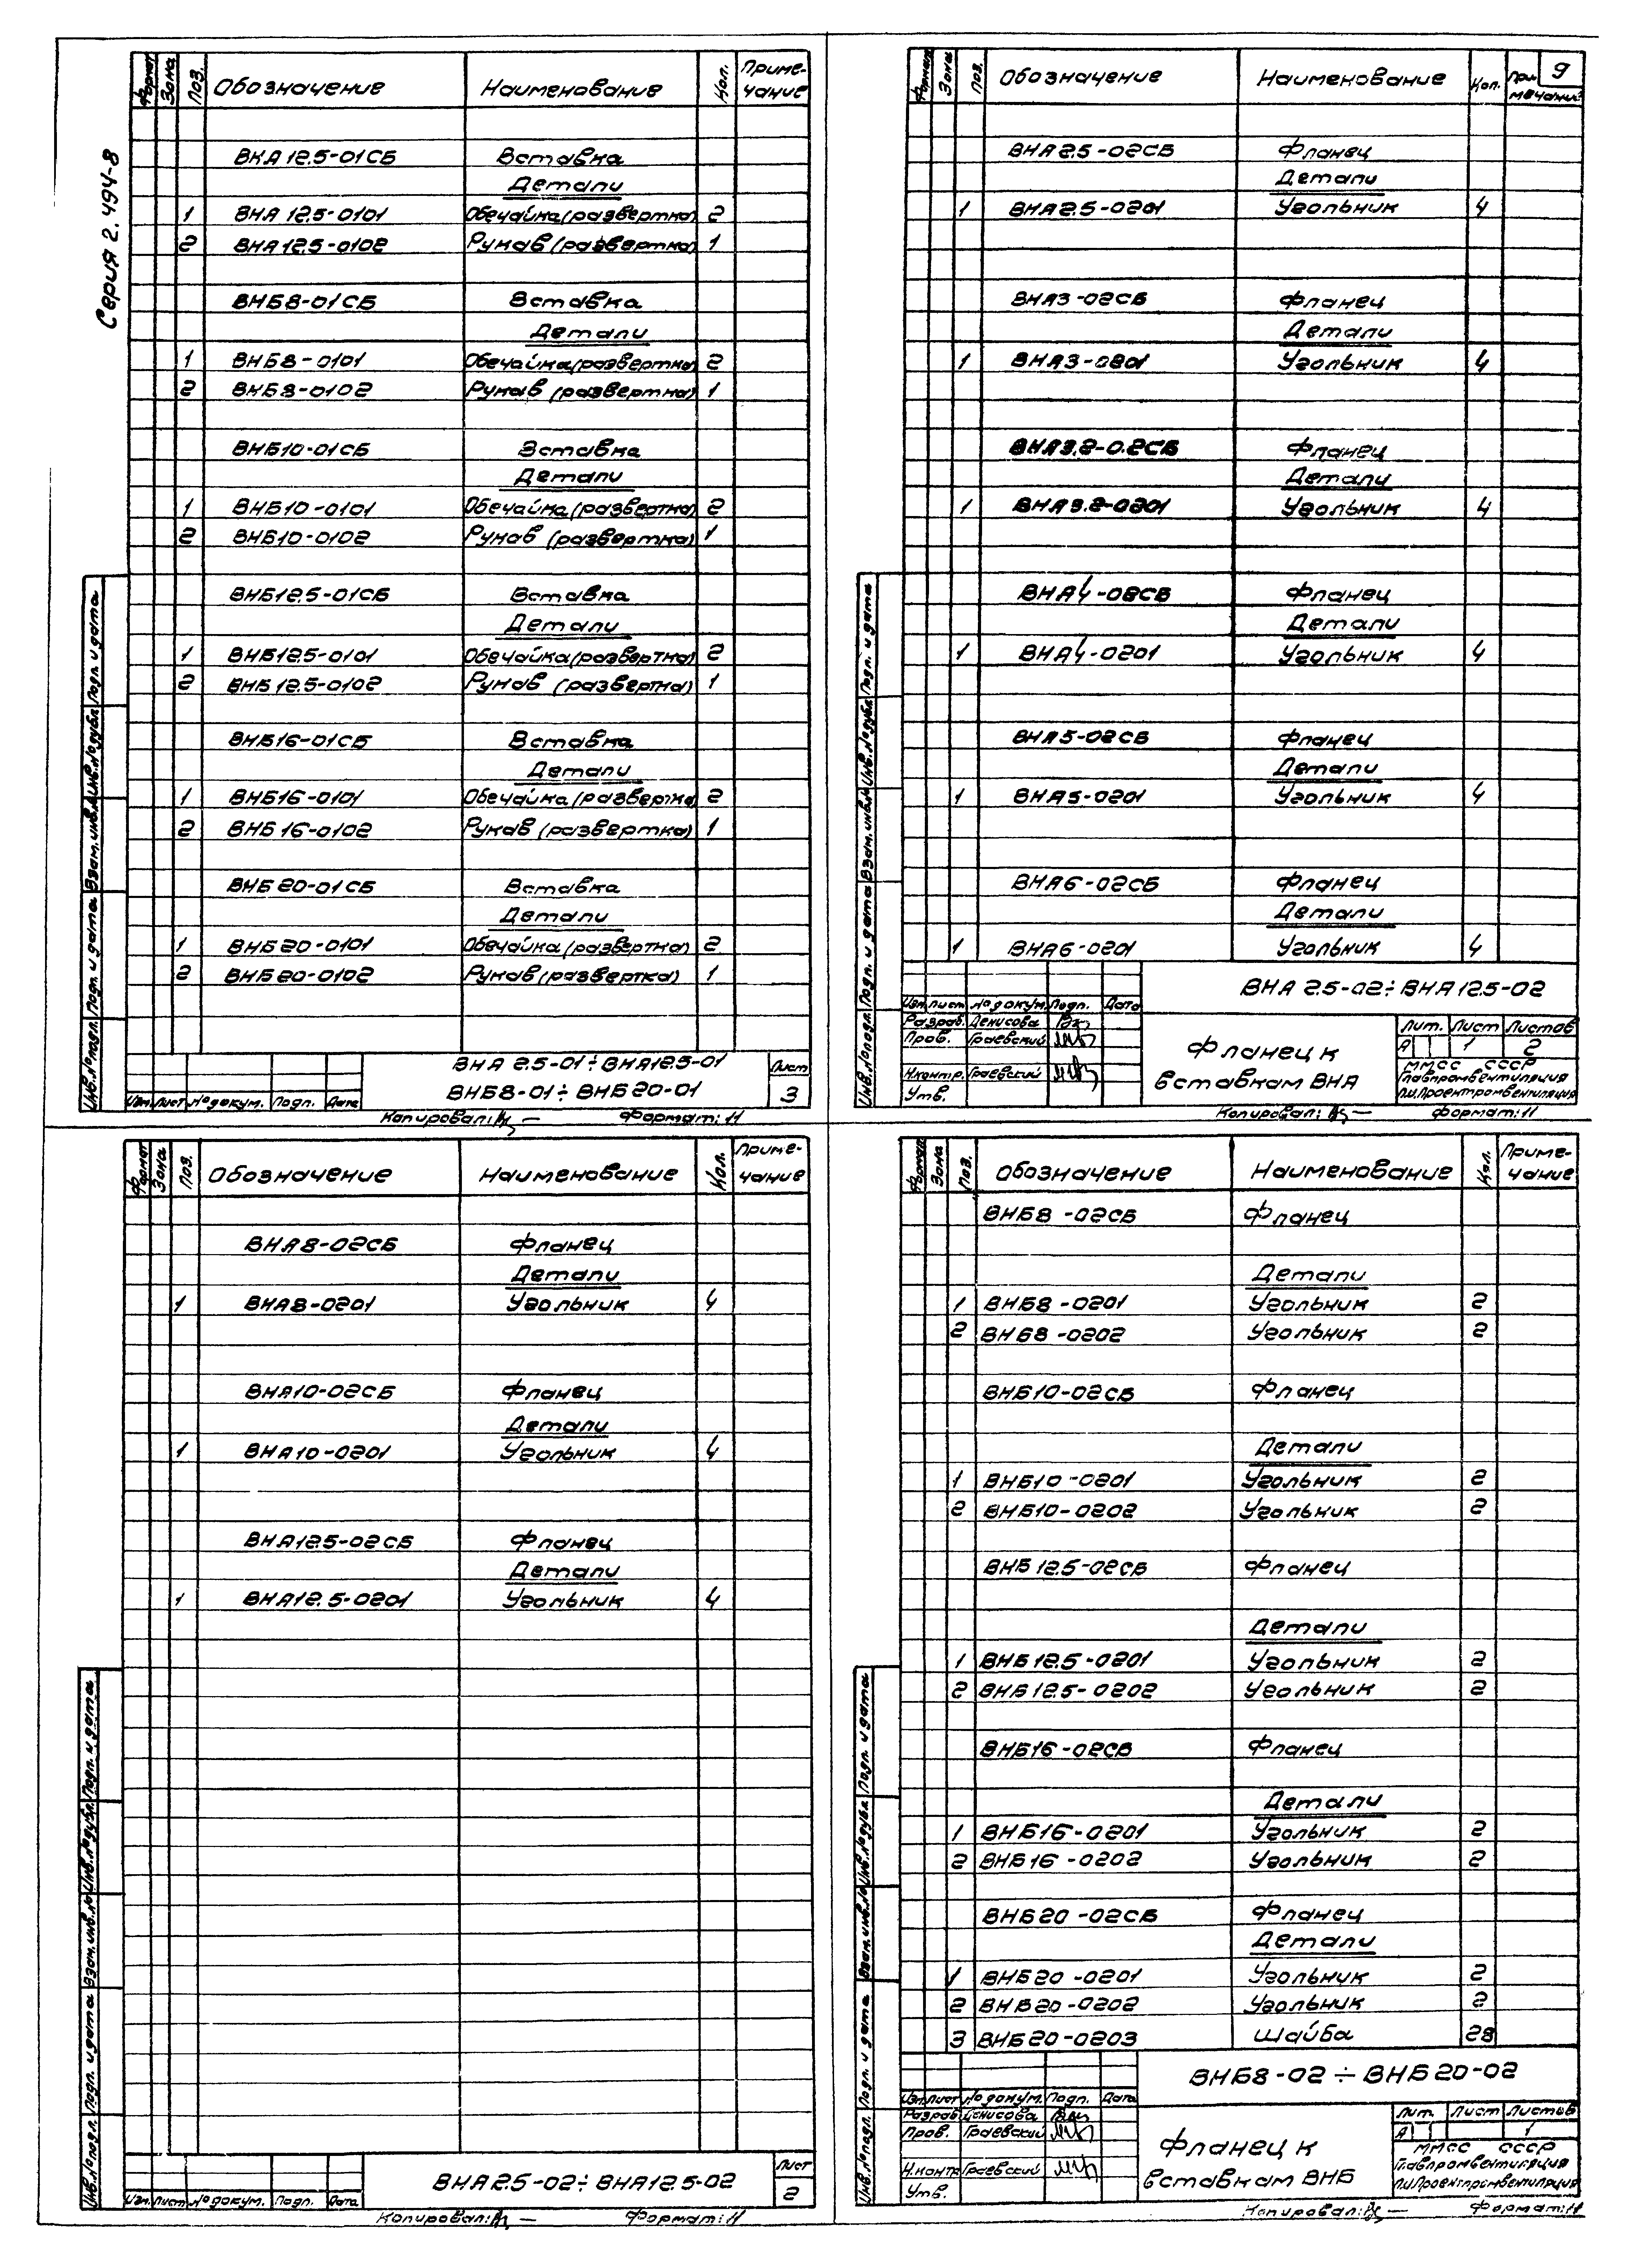 Серия 2.494-8
Формат Зона Поз. Обозначение Наименование Кол. Приме-
чание
ВНА 12.5-01СБ Вставка
Детали
1 ВНА 12.5-0101 Обечайка (развертка) 2
2 ВНА 12.5-0102 Рукав (развертка) 1
ВНБ8-01СБ Вставка
Детали
1 ВНБ8-0101 Обечайка (развертка) 2
2 ВНБ8-0102 Рукав (развертка) 1
ВНБ10-01СБ Вставка
Детали
1 ВНБ10-0101 Обечайка (развертка) 2
2 ВНБ10-0102 Рукав (развертка) 1
ВНБ12.5-01СБ Вставка
Детали
1 ВНБ12.5-0101 Обечайка (развертка) 2
2 ВНБ 12.5-0102 Рукав (развертка) 1
ВНБ16-01СБ Вставка
Детали
1 ВНБ16-0101 Обечайка (развертка) 2
2 ВНБ 16-0102 Рукав (развертка) 1
ВНБ 20-01СБ Вставка
Детали
1 ВНБ20-0101 Обечайка (развертка) 2
2 ВНБ20-0102 Рукав (развертка) 1
Инв.№подл. Подп. и дата Взам.инв.№ Инв.№дубл. Подп. и дата
ВНА 2.5-01÷ВНА12.5-01
ВНБ8-01÷ВНБ20-01
Лист
3
Изм. Лист №докум. Подп. Дата
Копировал: Формат: 11
Формат Зона Поз. Обозначение Наименование Кол. При 9
мечание
ВНА2.5-02СБ Фланец
Детали
1 ВНА2.5-0201 Угольник 4
ВНА3-02СБ Фланец
Детали
1 ВНА3-0201 Угольник 4
ВНА3.2-02СБ Фланец
Детали
1 ВНА3.2-0201 Угольник 4
ВНА4-02СБ Фланец
Детали
1 ВНА4-0201 Угольник 4
ВНА5-02СБ Фланец
Детали
1 ВНА5-0201 Угольник 4
ВНА6-02СБ Фланец
Детали
1 ВНА6-0201 Угольник 4
Инв.№подл. Подп. и дата Взам.инв.№ Инв.№дубл. Подп. и дата
ВНА 2.5-02÷ВНА12.5-02
Изм. Лист №докум. Подп. Дата
Разраб. Денисова
Пров. Граевский
Н.контр. Граевский
Утв.
Фланец к
вставкам ВНА
Лит. Лист Листов
А 1 2
ММСС СССР
Главпромвентиляция
П.И.Проектпромвентиляция
Копировал: Формат: 11
Формат Зона Поз. Обозначение Наименование Кол. Приме-
чание
ВНА8-02СБ Фланец
Детали
1 ВНА8-0201 Угольник 4
ВНА10-02СБ Фланец
Детали
1 ВНА10-0201 Угольник 4
ВНА12.5-02СБ Фланец
Детали
1 ВНА12.5-0201 Угольник 4
Инв.№подл. Подп. и дата Взам.инв.№ Инв.№дубл. Подп. и дата
ВНА2.5-02÷ВНА12.5-02
Лист
2
Изм. Лист №докум. Подп. Дата
Копировал: Формат: 11
Формат Зона Поз. Обозначение Наименование Кол. Приме-
чание
ВНБ8-02СБ Фланец
Детали
1 ВНБ8-0201 Угольник 2
2 ВНБ8-0202 Угольник 2
ВНБ10-02СБ Фланец
Детали
1 ВНБ10-0201 Угольник 2
2 ВНБ10-0202 Угольник 2
ВНБ 12.5-02СБ Фланец
Детали
1 ВНБ 12.5-0201 Угольник 2
2 ВНБ12.5-0202 Угольник 2
ВНБ16-02СБ Фланец
Детали
1 ВНБ16-0201 Угольник 2
2 ВНБ16-0202 Угольник 2
ВНБ20-02СБ Фланец
Детали
1 ВНБ20-0201 Угольник 2
2 ВНБ20-0202 Угольник 2
3 ВНБ20-0203 Шайба 28
Инв.№подл. Подп. и дата Взам.инв.№ Инв.№дубл. Подп. и дата
ВНБ8-02÷ВНБ20-02
Изм. Лист №докум. Подп. Дата
Разраб. Денисова
Пров. Граевский
Н.контр. Граевский
Утв.
Фланец к
вставкам ВНБ
Лит. Лист Листов
А 1
ММСС СССР
Главпромвентиляция
П.И.Проектпромвентиляция
Копировал: Формат: 11